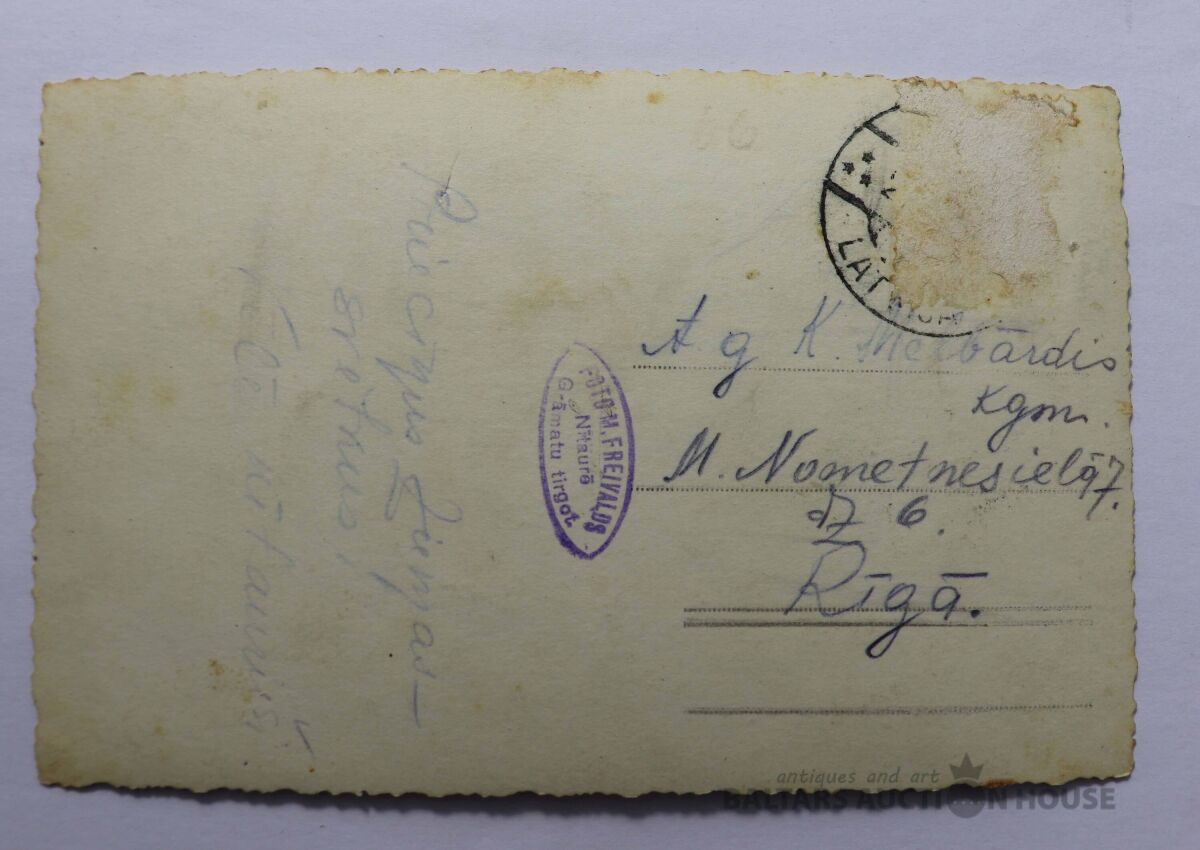 66
LATVIJA
Priecīgus Ziemas-
svētkus,
vēlē
A g K. Melbārdis
kgm.
M. Nometnes ielā 7.
dz 6.
Rīgā.
FOTO M. FREIVALDS
Nītaurē
Grāmatu tirgot.
antiques and art
BALTARS AUCTION HOUSE